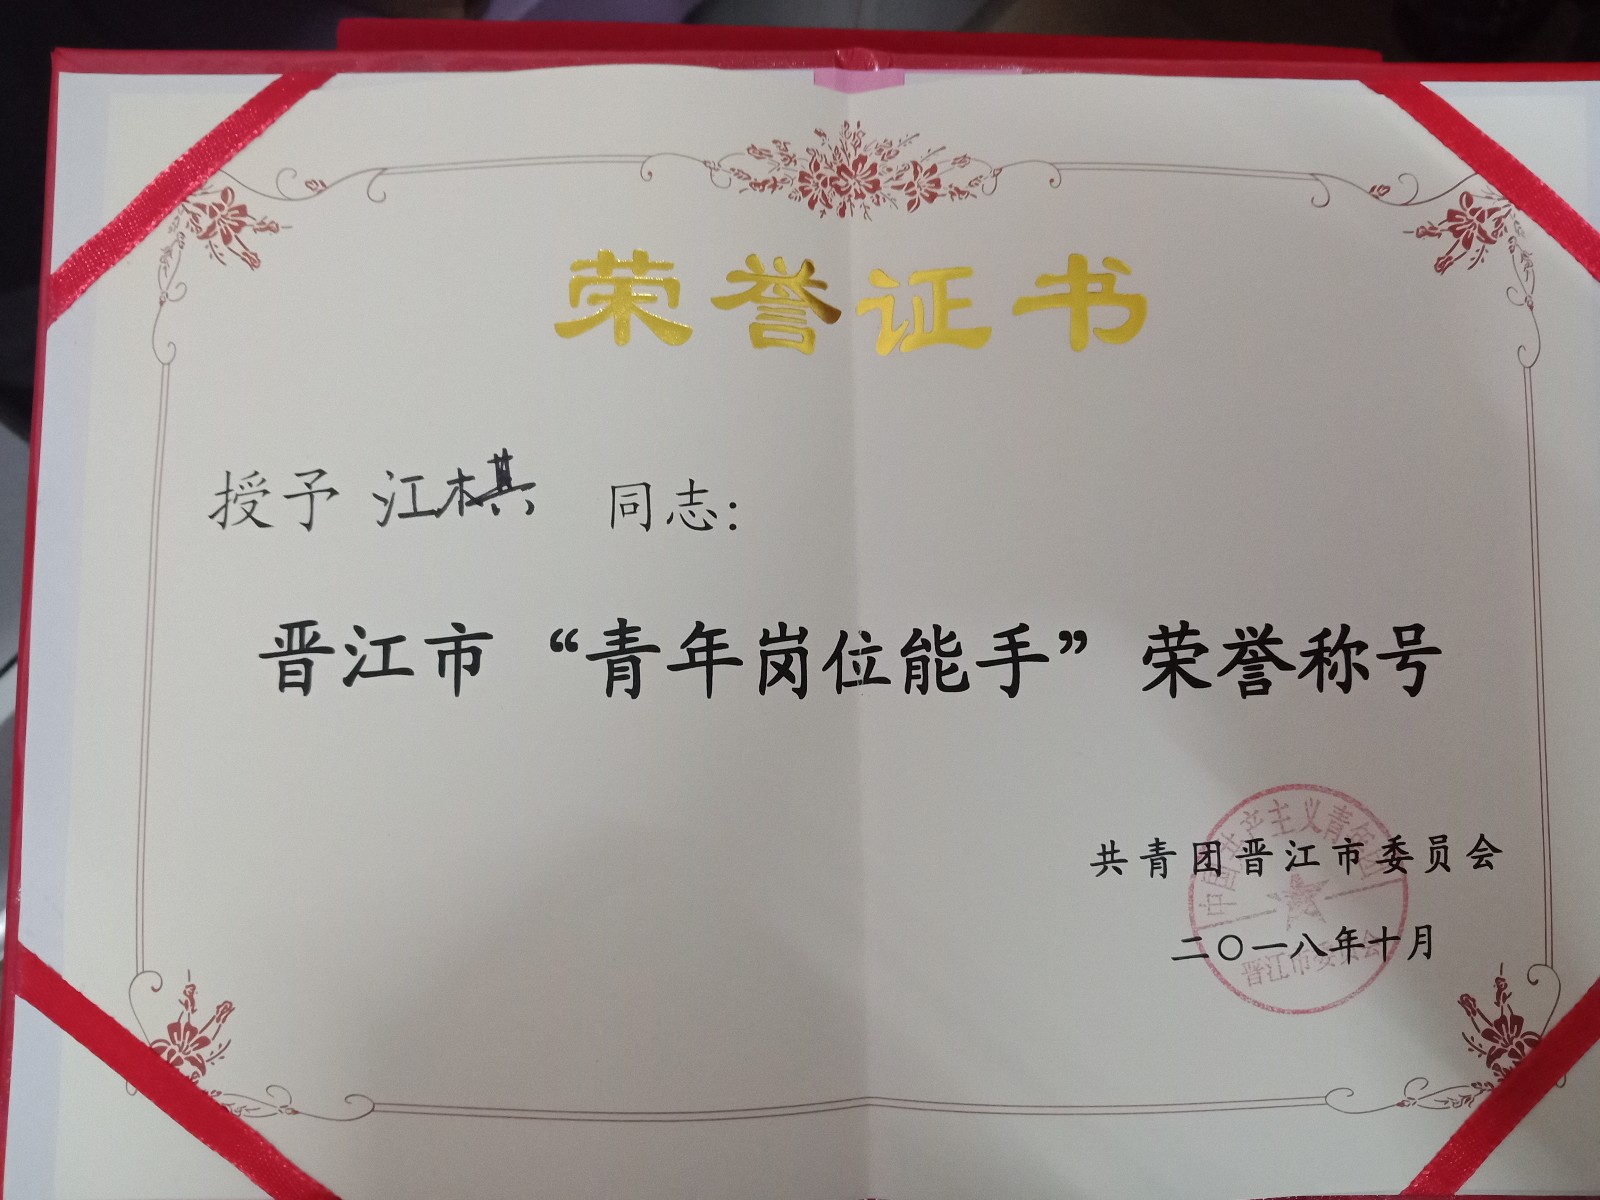 荣誉证书
授予 江棋 同志：
晋江市“青年岗位能手”荣誉称号
共青团晋江市委员会
二〇一八年十月
中国共产主义青年团
晋江市委员会